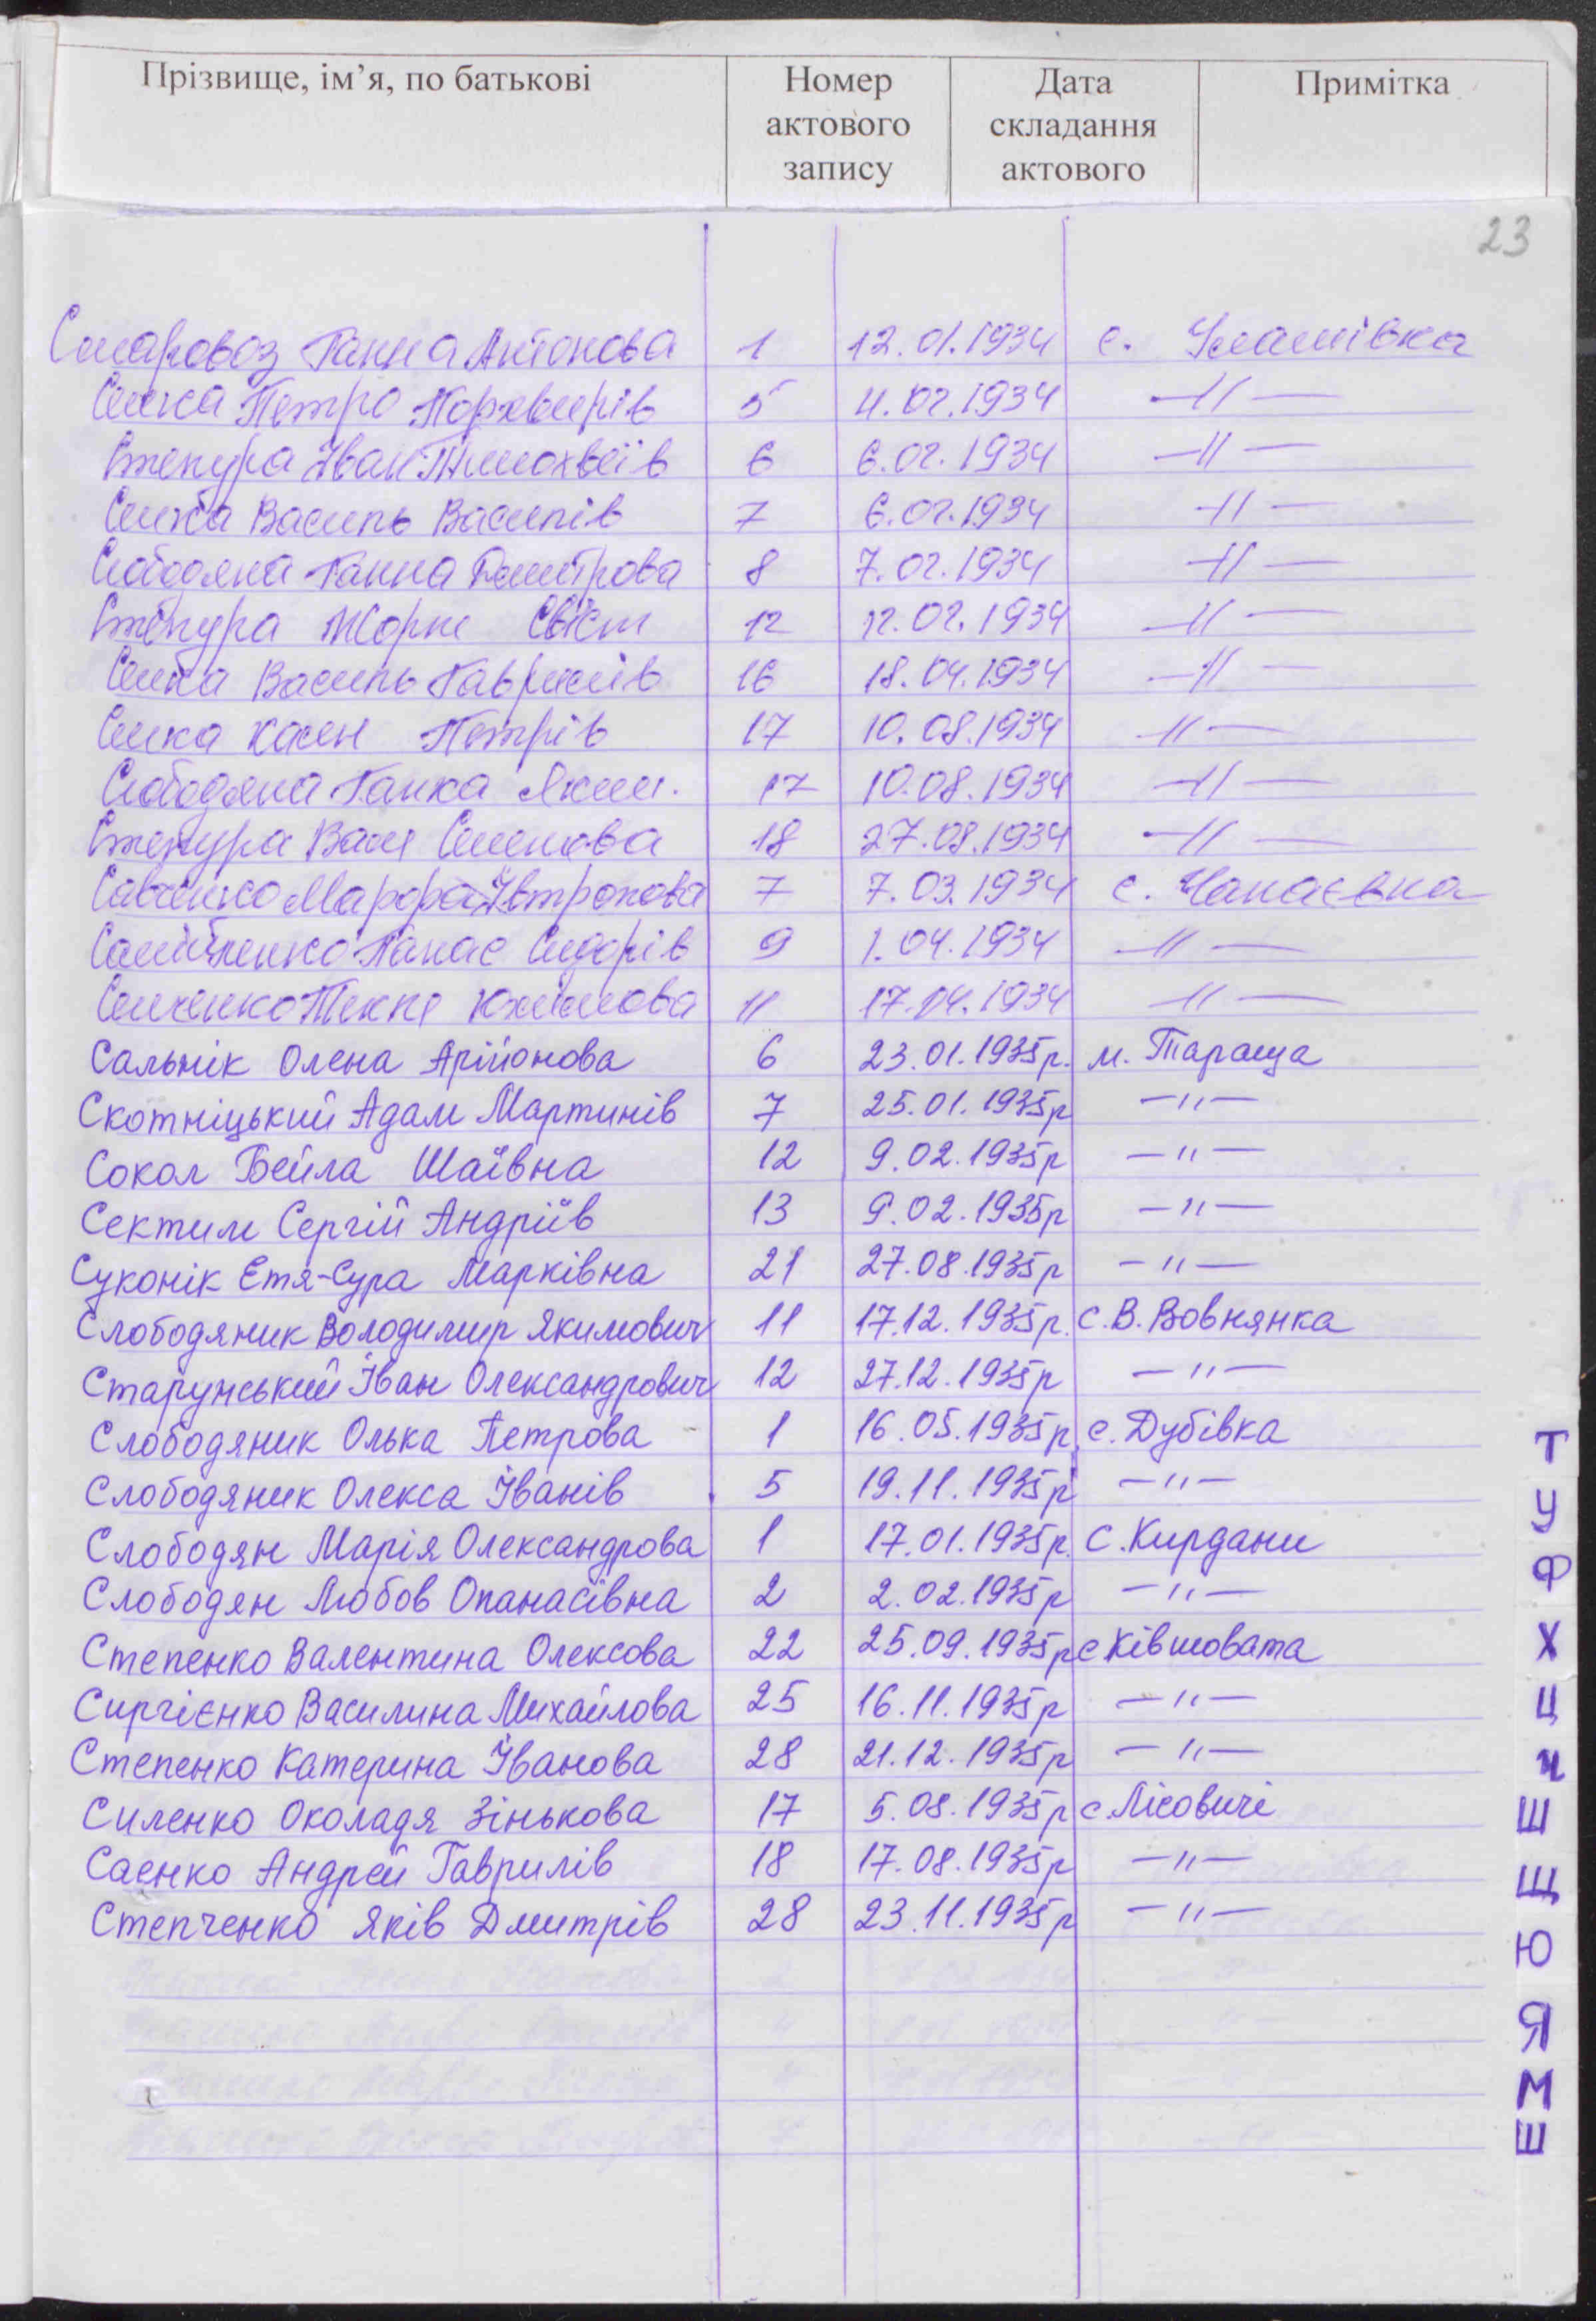 Прізвище, ім’я, по батькові Номер актового запису Дата складання актового Примітка
23
Старовоз Ганна Антонова 1 12.01.1934 с. Улашівка
Петро Порхвирів 5 4.02.1934 —//—
Іван Тимохвеїв 6 6.02.1934 —//—
Василь Василів 7 6.02.1934 —//—
Слободяна Ганна Дмитрова 8 7.02.1934 —//—
12 12.02.1934 —//—
Василь Гаврилів 16 18.04.1934 —//—
Петрів 17 10.08.1934 —//—
Слободяна Ганка Яким. 17 10.08.1934 —//—
Семенова 18 27.08.1934 —//—
Савченко Марфа 7 7.03.1934 с. Чапаєвка
Панас Сидорів 9 1.04.1934 —//—
Семченко Текля Юхимова 11 17.04.1934 —//—
Сальнік Олена Арійонова 6 23.01.1935р. м. Тараща
Скотніцький Адам Мартинів 7 25.01.1935р —"—
Сокол Бейла Шаївна 12 9.02.1935р —"—
Сектим Сергій Андріїв 13 9.02.1935р —"—
Суконік Етя-Сура Марківна 21 27.08.1935р —"—
Слободяник Володимир Якимович 11 17.12.1935р. с. В. Вовнянка
Старунський Іван Олександрович 12 27.12.1935р —"—
Слободяник Олька Петрова 1 16.05.1935р. с. Дубівка
Слободяник Олекса Іванів 5 19.11.1935р —"—
Слободян Марія Олександрова 1 17.01.1935р. с. Кирдани
Слободян Любов Опанасівна 2 2.02.1935р —"—
Степенко Валентина Олексова 22 25.09.1935р с Ківшовата
Сиргієнко Василина Михайлова 25 16.11.1935р —"—
Степенко Катерина Іванова 28 21.12.1935р —"—
Силенко Околадя Зінькова 17 5.08.1935р с. Лісовичі
Саєнко Андрей Гаврилів 18 17.08.1935р —"—
Степченко Яків Дмитрів 28 23.11.1935р —"—
Т
У
Ф
Х
Ц
Ч
Ш
Щ
Ю
Я
М
Ш